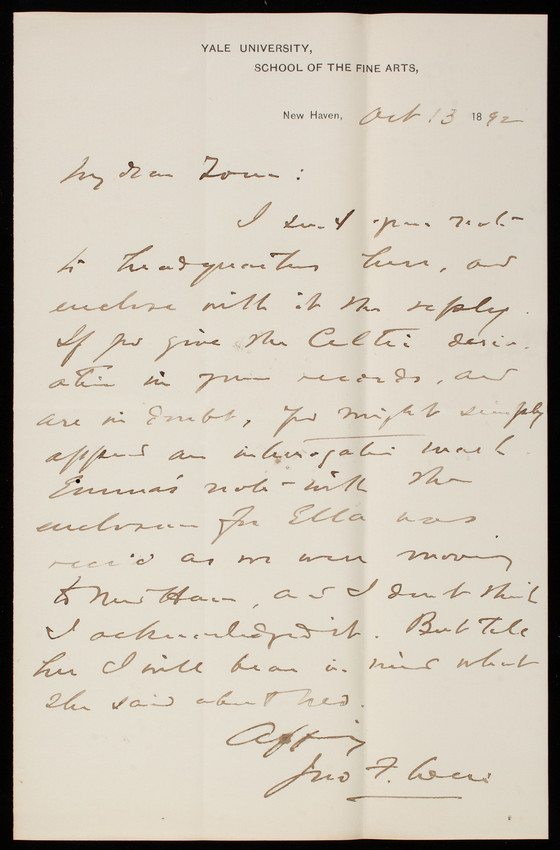 YALE UNIVERSITY,
SCHOOL OF THE FINE ARTS,
New Haven, Oct 13 1892
My dear Tom:
I send your note
to headquarters here, and
enclose with it the reply.
If you give the Celtic deriv-
ation in your records, and
are in doubt, you might simply
append an interrogation mark.
Emma's note with the
enclosure for Ella was
rec'd as we were moving
to New Haven, and I don't think
I acknowledged it. But tell
her I will bear in mind what
she said about
Affly
Jno F. Weir